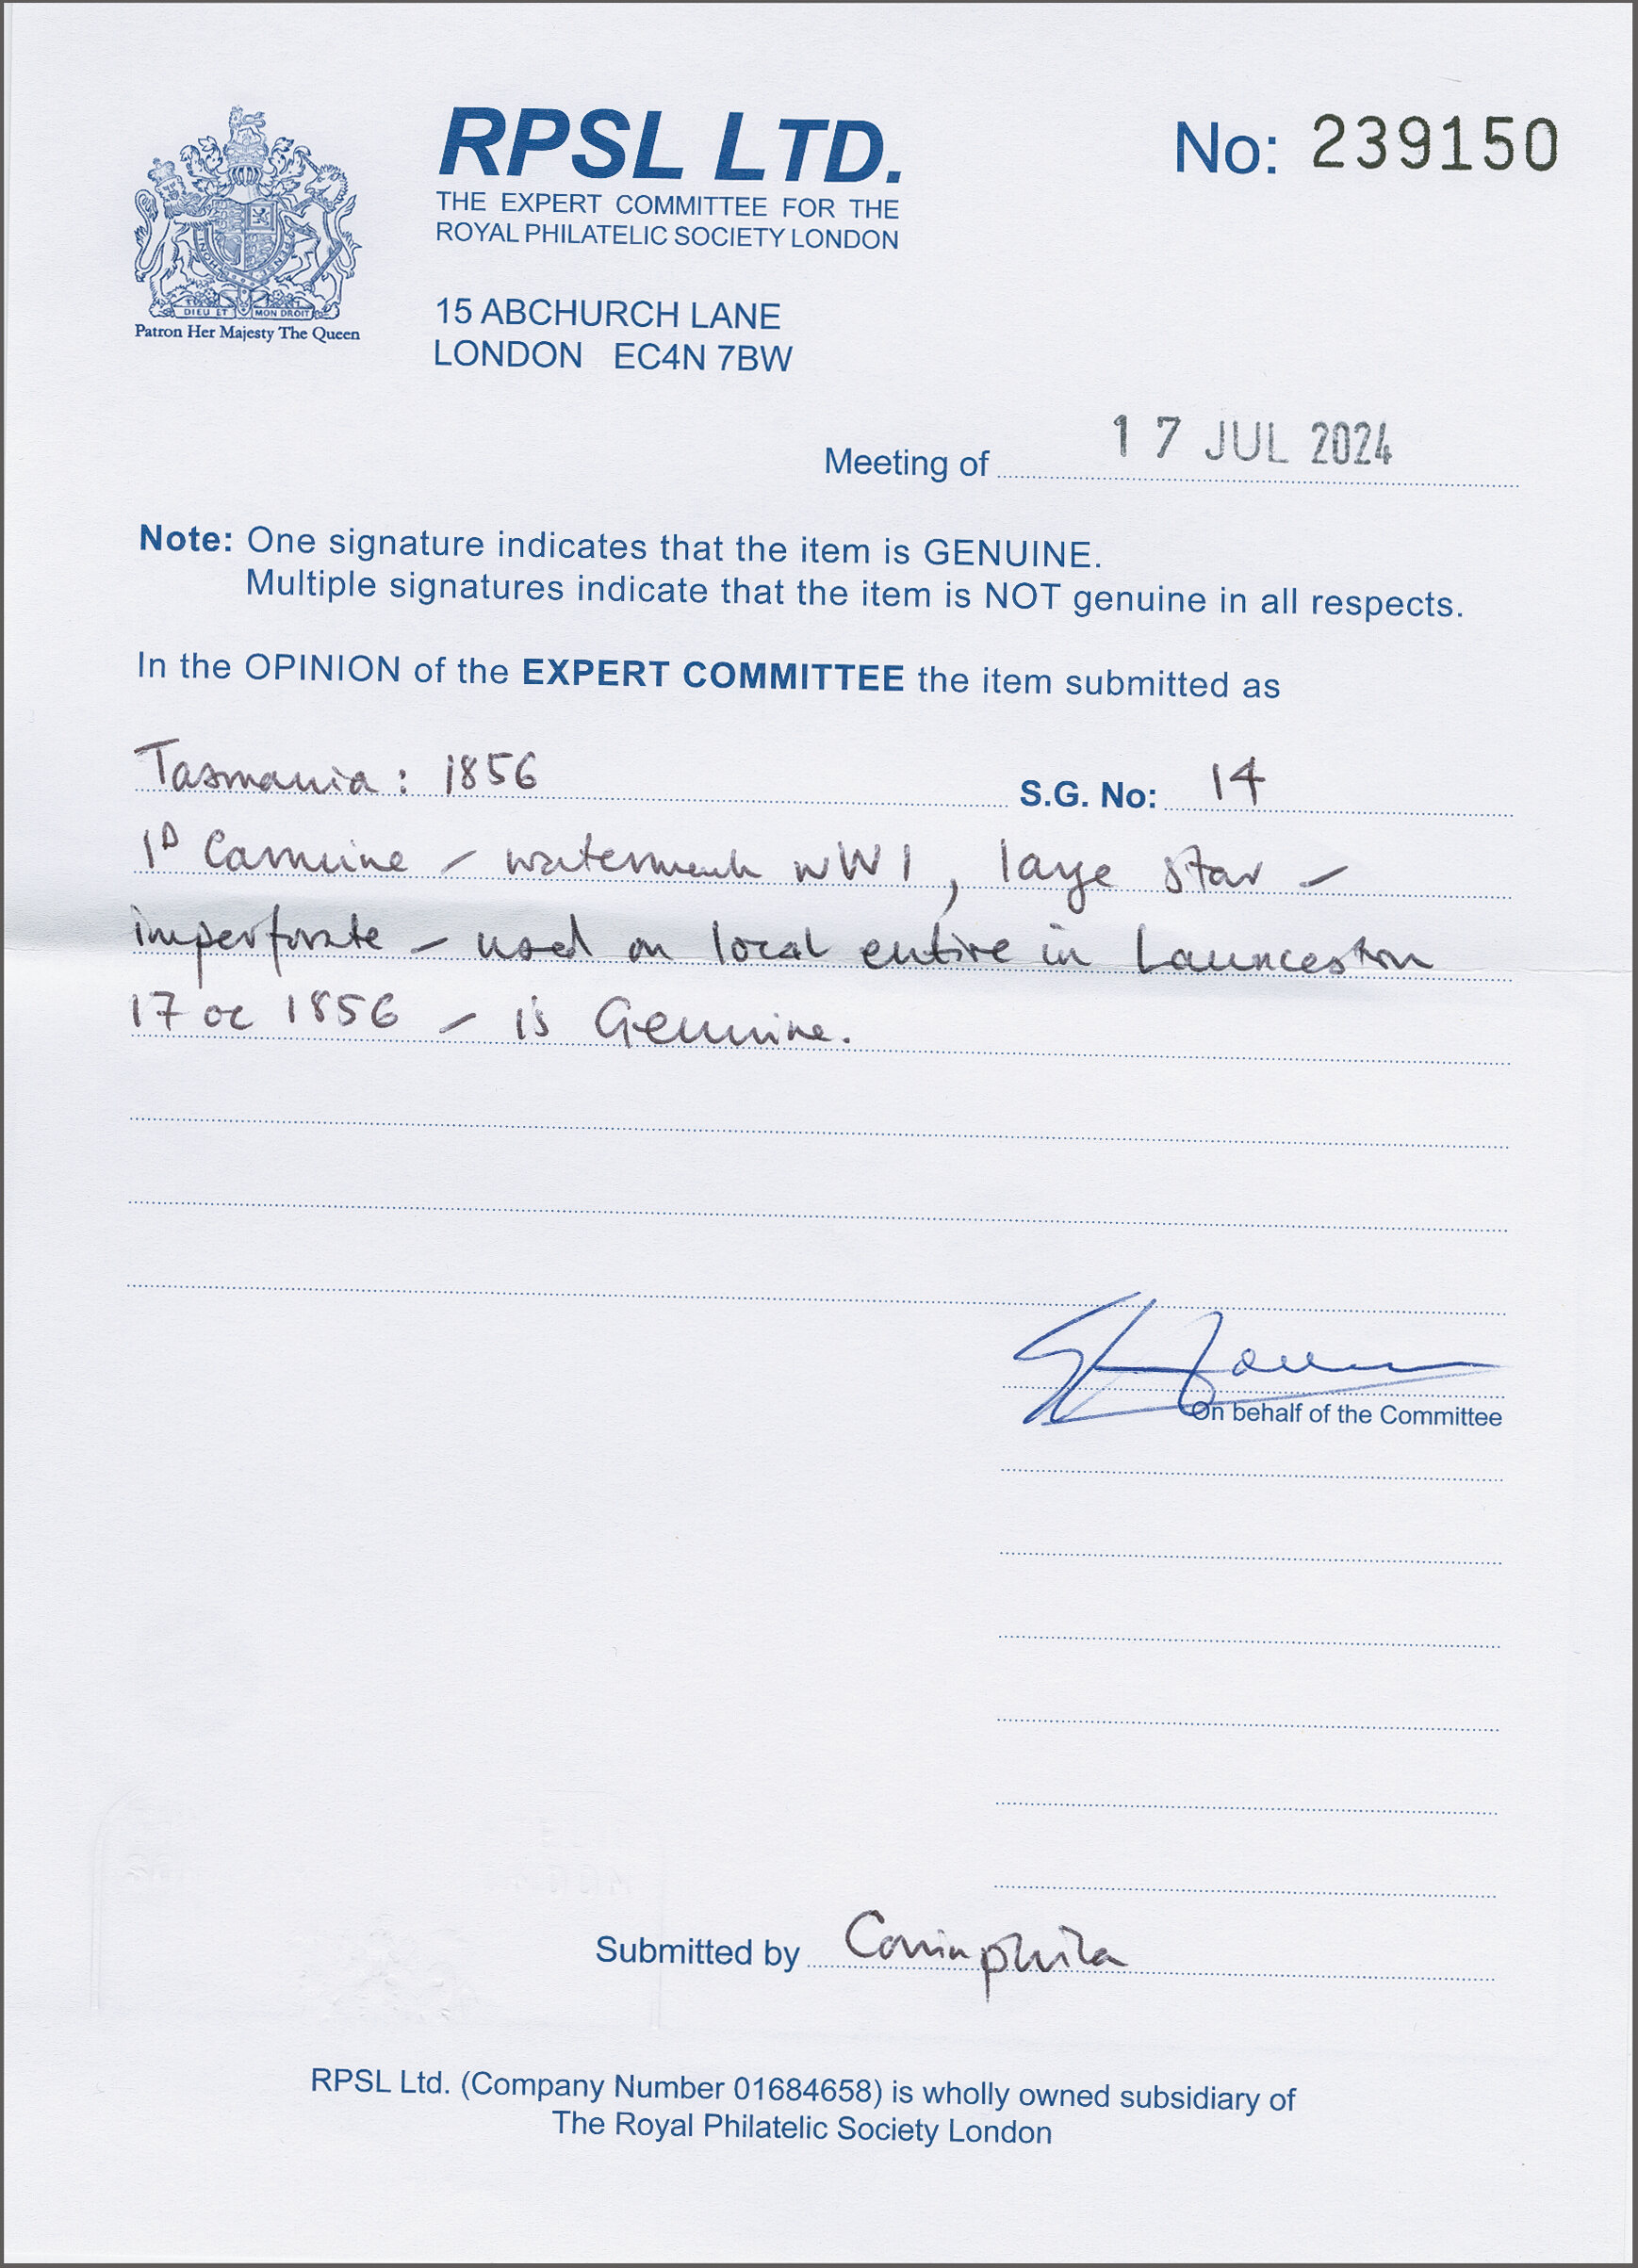 RPSL LTD.
THE EXPERT COMMITTEE FOR THE
ROYAL PHILATELIC SOCIETY LONDON
No: 239150
DIEU ET MON DROIT
Patron Her Majesty The Queen
15 ABCHURCH LANE
LONDON EC4N 7BW
Meeting of 17 JUL 2024
Note: One signature indicates that the item is GENUINE.
Multiple signatures indicate that the item is NOT genuine in all respects.
In the OPINION of the EXPERT COMMITTEE the item submitted as
Tasmania: 1856 S.G. No: 14
1D Carmine - watermark wW1, large star -
imperforate - used on local entire in Launceston
17 oc 1856 - is Genuine.
On behalf of the Committee
Submitted by Corinphila
RPSL Ltd. (Company Number 01684658) is wholly owned subsidiary of
The Royal Philatelic Society London